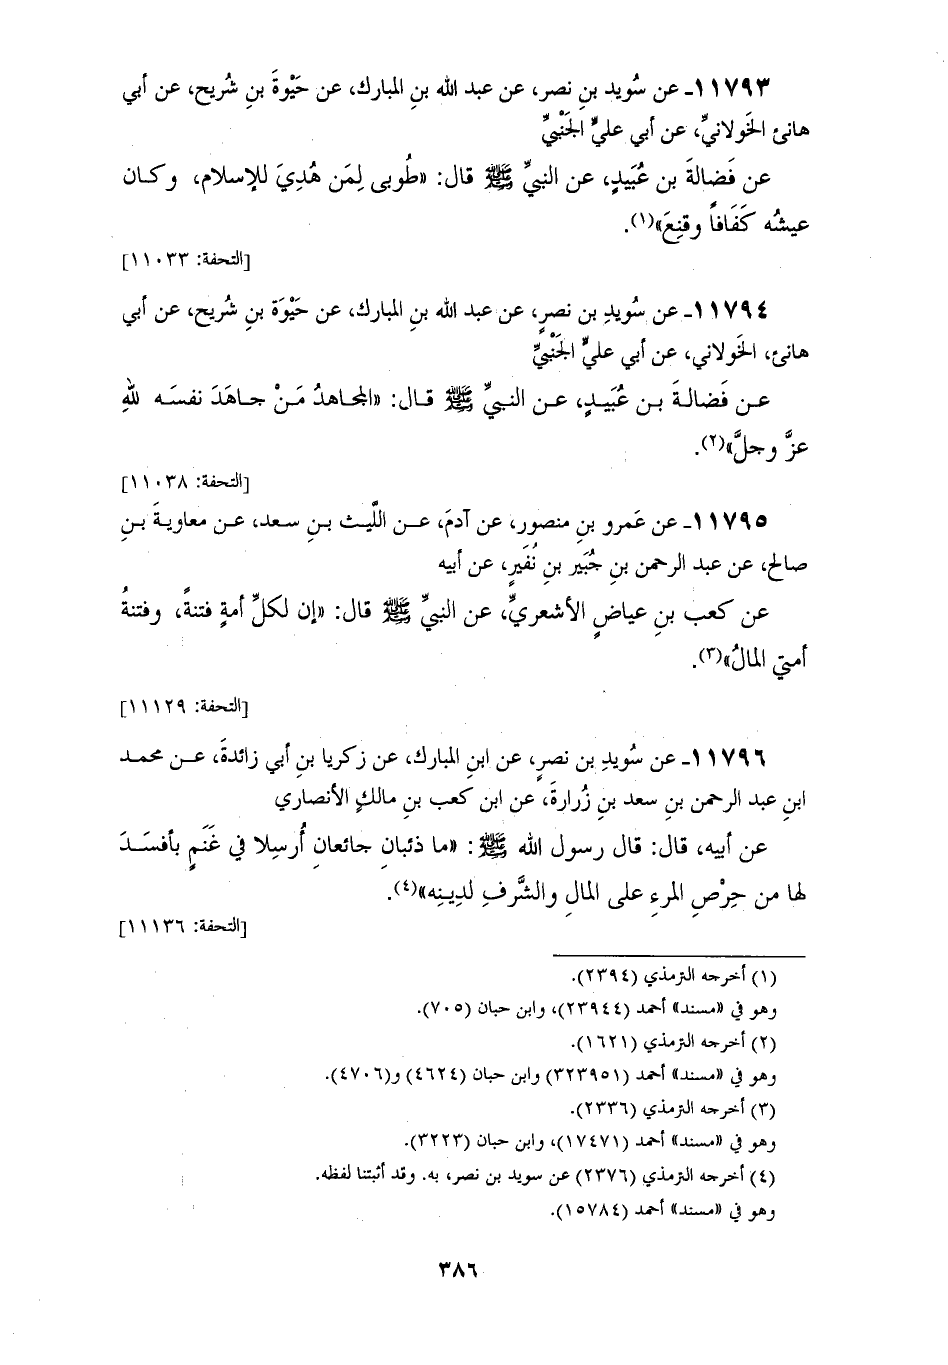 ١١٧٩٣ـ عن سُويد بنِ نصر، عن عبد الله بنِ المبارك، عن حَيْوةَ بنِ شُريح، عن أبي
هانئ الخَولانيِّ، عن أبي عليٍّ الجَنْبيِّ
عن فَضالةَ بن عُبَيدٍ، عن النبيِّ ﷺ قال: «طُوبى لِمَن هُدِيَ للإسلام، وكان
عيشُه كَفَافاً وقنِعَ»(١).
[التحفة: ١١٠٣٣]
١١٧٩٤ـ عن سُويدِ بن نصرٍ، عن عبد الله بنِ المبارك، عن حَيْوَة بنِ شُريح، عن أبي
هانئ، الخَولاني، عن أبي عليٍّ الجَنْبيِّ
عـن فَضالـةَ بـن عُبَيـدٍ، عـن النبـيِّ ﷺ قـال: «المجـاهدُ مَـنْ جـاهَدَ نفسَـه للهِ
عزَّ وجلَّ»(٢).
[التحفة: ١١٠٣٨]
١١٧٩٥ـ عن عَمرو بنِ منصور، عن آدمَ، عـن اللَّيـث بـنِ سـعد، عـن معاويـةَ بـنِ
صالح، عن عبد الرحمن بنِ جُبَير بنِ نُفَيرٍ، عن أبيه
عن كعب بنِ عياضٍ الأشعريِّ، عن النبيِّ ﷺ قال: «إن لكلِّ أمةٍ فتنةً، وفتنةُ
أمتي المالُ»(٣).
[التحفة: ١١١٢٩]
١١٧٩٦ـ عن سُويدِ بن نصرٍ، عن ابنِ المبارك، عن زكريا بنِ أبي زائدةَ، عـن محمـد
ابنِ عبد الرحمن بنِ سعد بنِ زُرارةَ، عن ابن كعب بنِ مالكٍ الأنصاري
عن أبيه، قال: قال رسول الله ﷺ: «ما ذئبانِ جائعانِ أُرسِلا في غَنَمٍ بأفسَـدَ
لها من حِرْصِ المرءِ على المالِ والشَّرفِ لدِينِه»(٤).
[التحفة: ١١١٣٦]
(١) أخرجه الترمذي (٢٣٩٤).
وهو في «مسند» أحمد (٢٣٩٤٤)، وابن حبان (٧٠٥).
(٢) أخرجه الترمذي (١٦٢١).
وهو في «مسند» أحمد (٣٢٣٩٥١) وابن حبان (٤٦٢٤) و(٤٧٠٦).
(٣) أخرجه الترمذي (٢٣٣٦).
وهو في «مسند» أحمد (١٧٤٧١)، وابن حبان (٣٢٢٣).
(٤) أخرجه الترمذي (٢٣٧٦) عن سويد بن نصر، به. وقد أثبتنا لفظه.
وهو في «مسند» أحمد (١٥٧٨٤).
٣٨٦